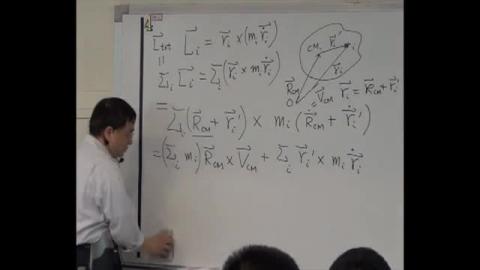 L⃗_tot L⃗_i = r⃗_i × (m_i r⃗̇_i)
||
Σ_i L⃗_i = Σ_i (r⃗_i × m_i r⃗̇_i)
= Σ_i (R⃗_CM + r⃗_i') × m_i (R⃗̇_CM + r⃗̇_i')
= (Σ_i m_i) R⃗_CM × V⃗_CM + Σ_i r⃗_i' × m_i r⃗̇_i
CM r⃗_i' i
r⃗_i
R⃗_CM
O
V⃗_CM
r⃗_i = R⃗_CM + r⃗_i'